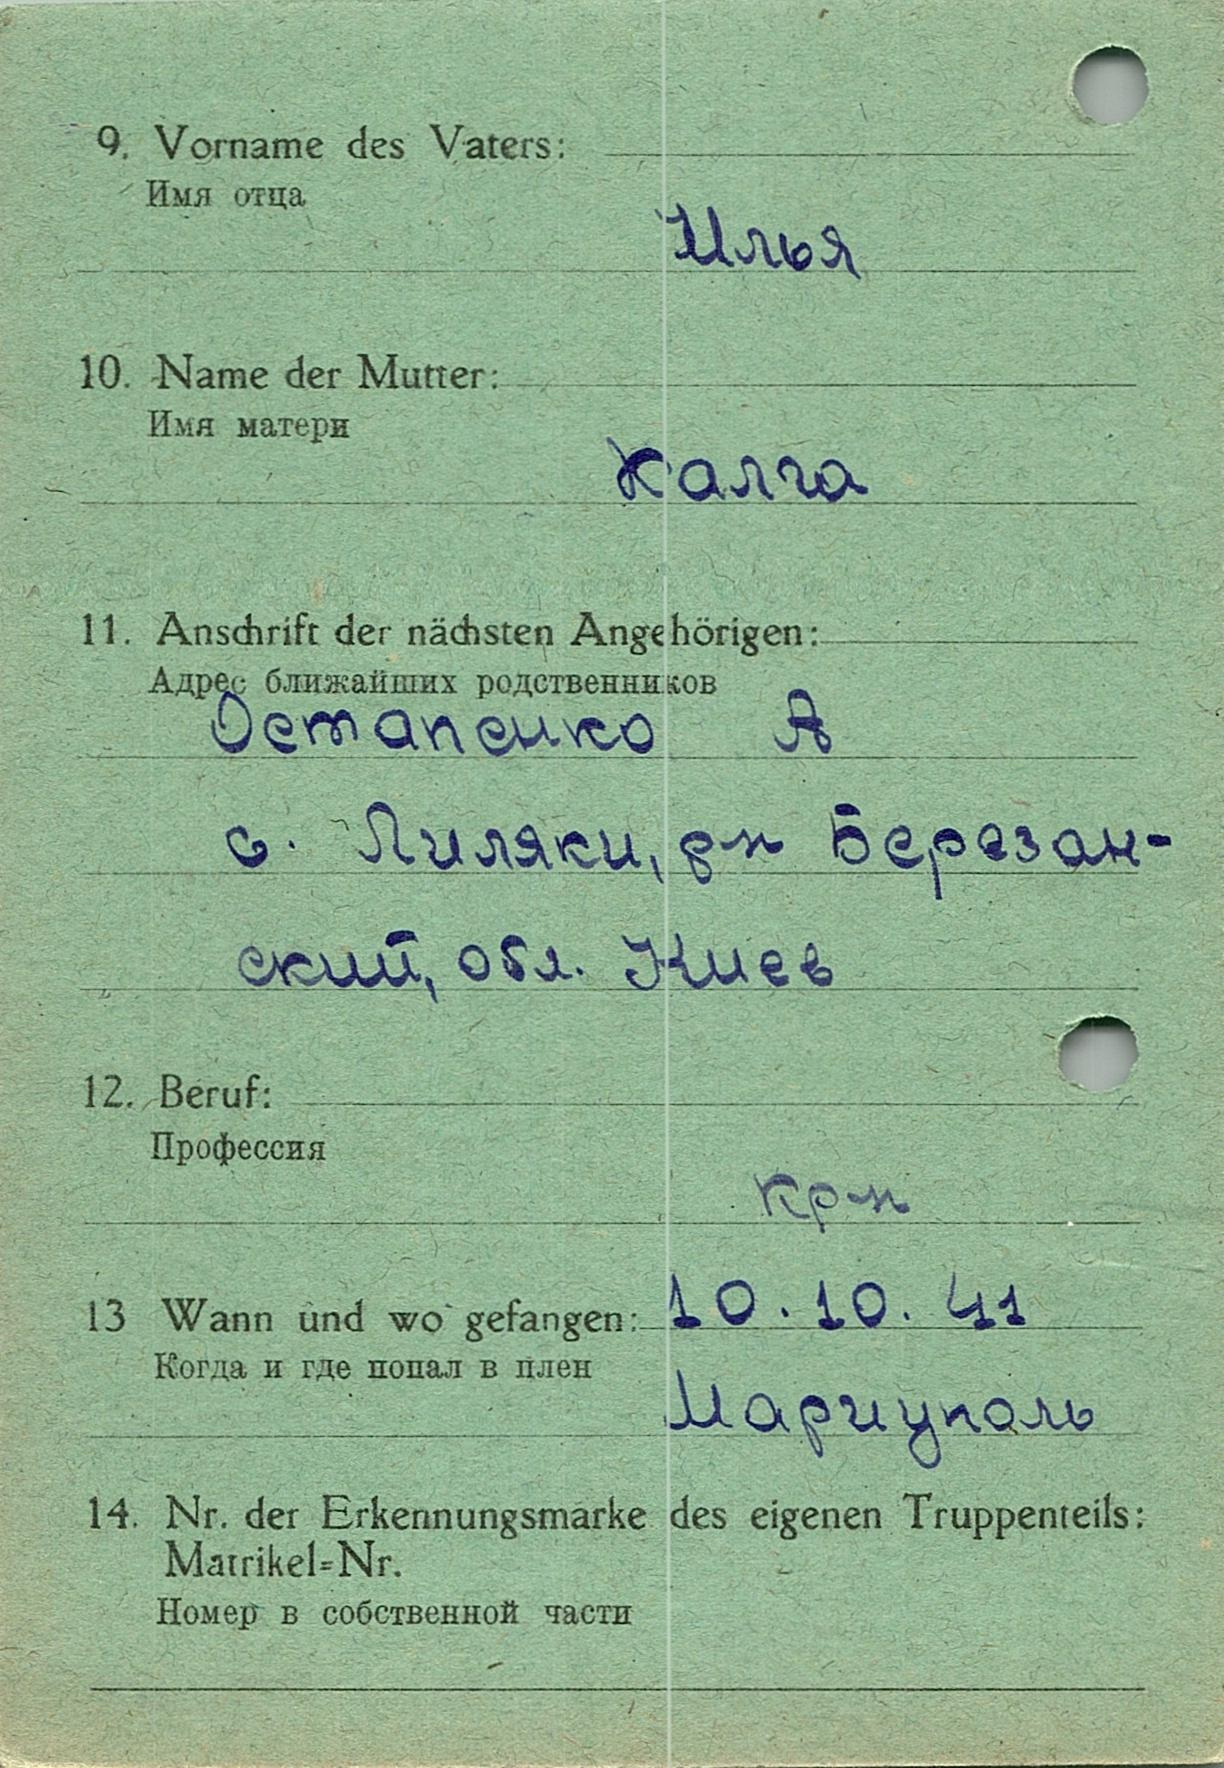 9. Vorname des Vaters:
Имя отца
Илья
10. Name der Mutter:
Имя матери
Калга
11. Anschrift der nächsten Angehörigen:
Адрес ближайших родственников
Остапенко А
с. Пиляки, р-н Березан-
ский, обл. Киев
12. Beruf:
Профессия
13 Wann und wo gefangen: 10.10.41
Когда и где попал в плен
Мариуполь
14. Nr. der Erkennungsmarke des eigenen Truppenteils:
Matrikel=Nr.
Номер в собственной части